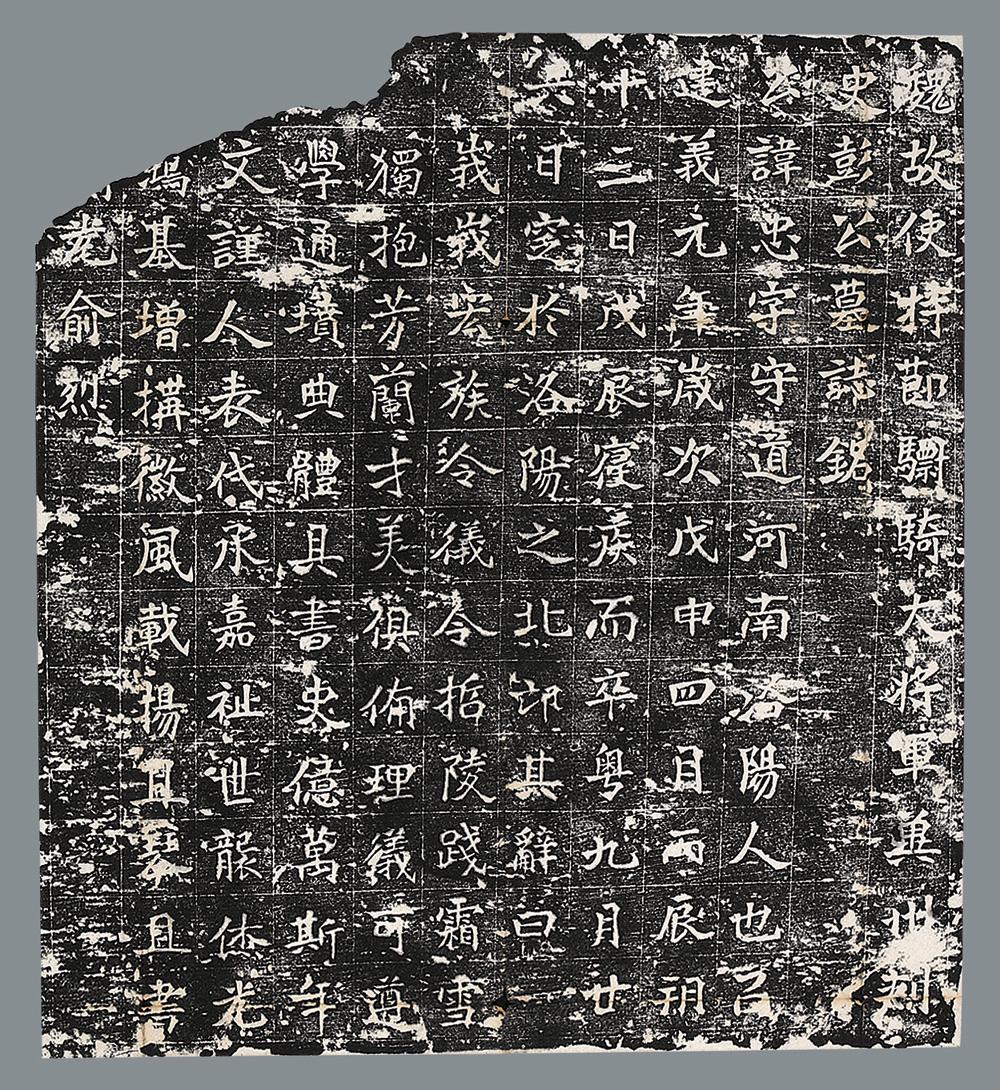 魏故使持節驃騎大將軍冀州刺
史彭公墓誌銘
公諱忠字守道河南洛陽人也以
建義元年歲次戊申四月丙辰朔
十三日戊辰寢疾而卒粵九月廿
六日窆於洛陽之北邙其辭曰
峩峩宏族玲儀令哲陵踐霜雪
獨抱芳蘭才美俱備理儀可遵
學通墳典體具書史億萬斯年
文謹人表代承嘉祉世襲休光
鴻基增構徽風載揚且篆且書
俞烈